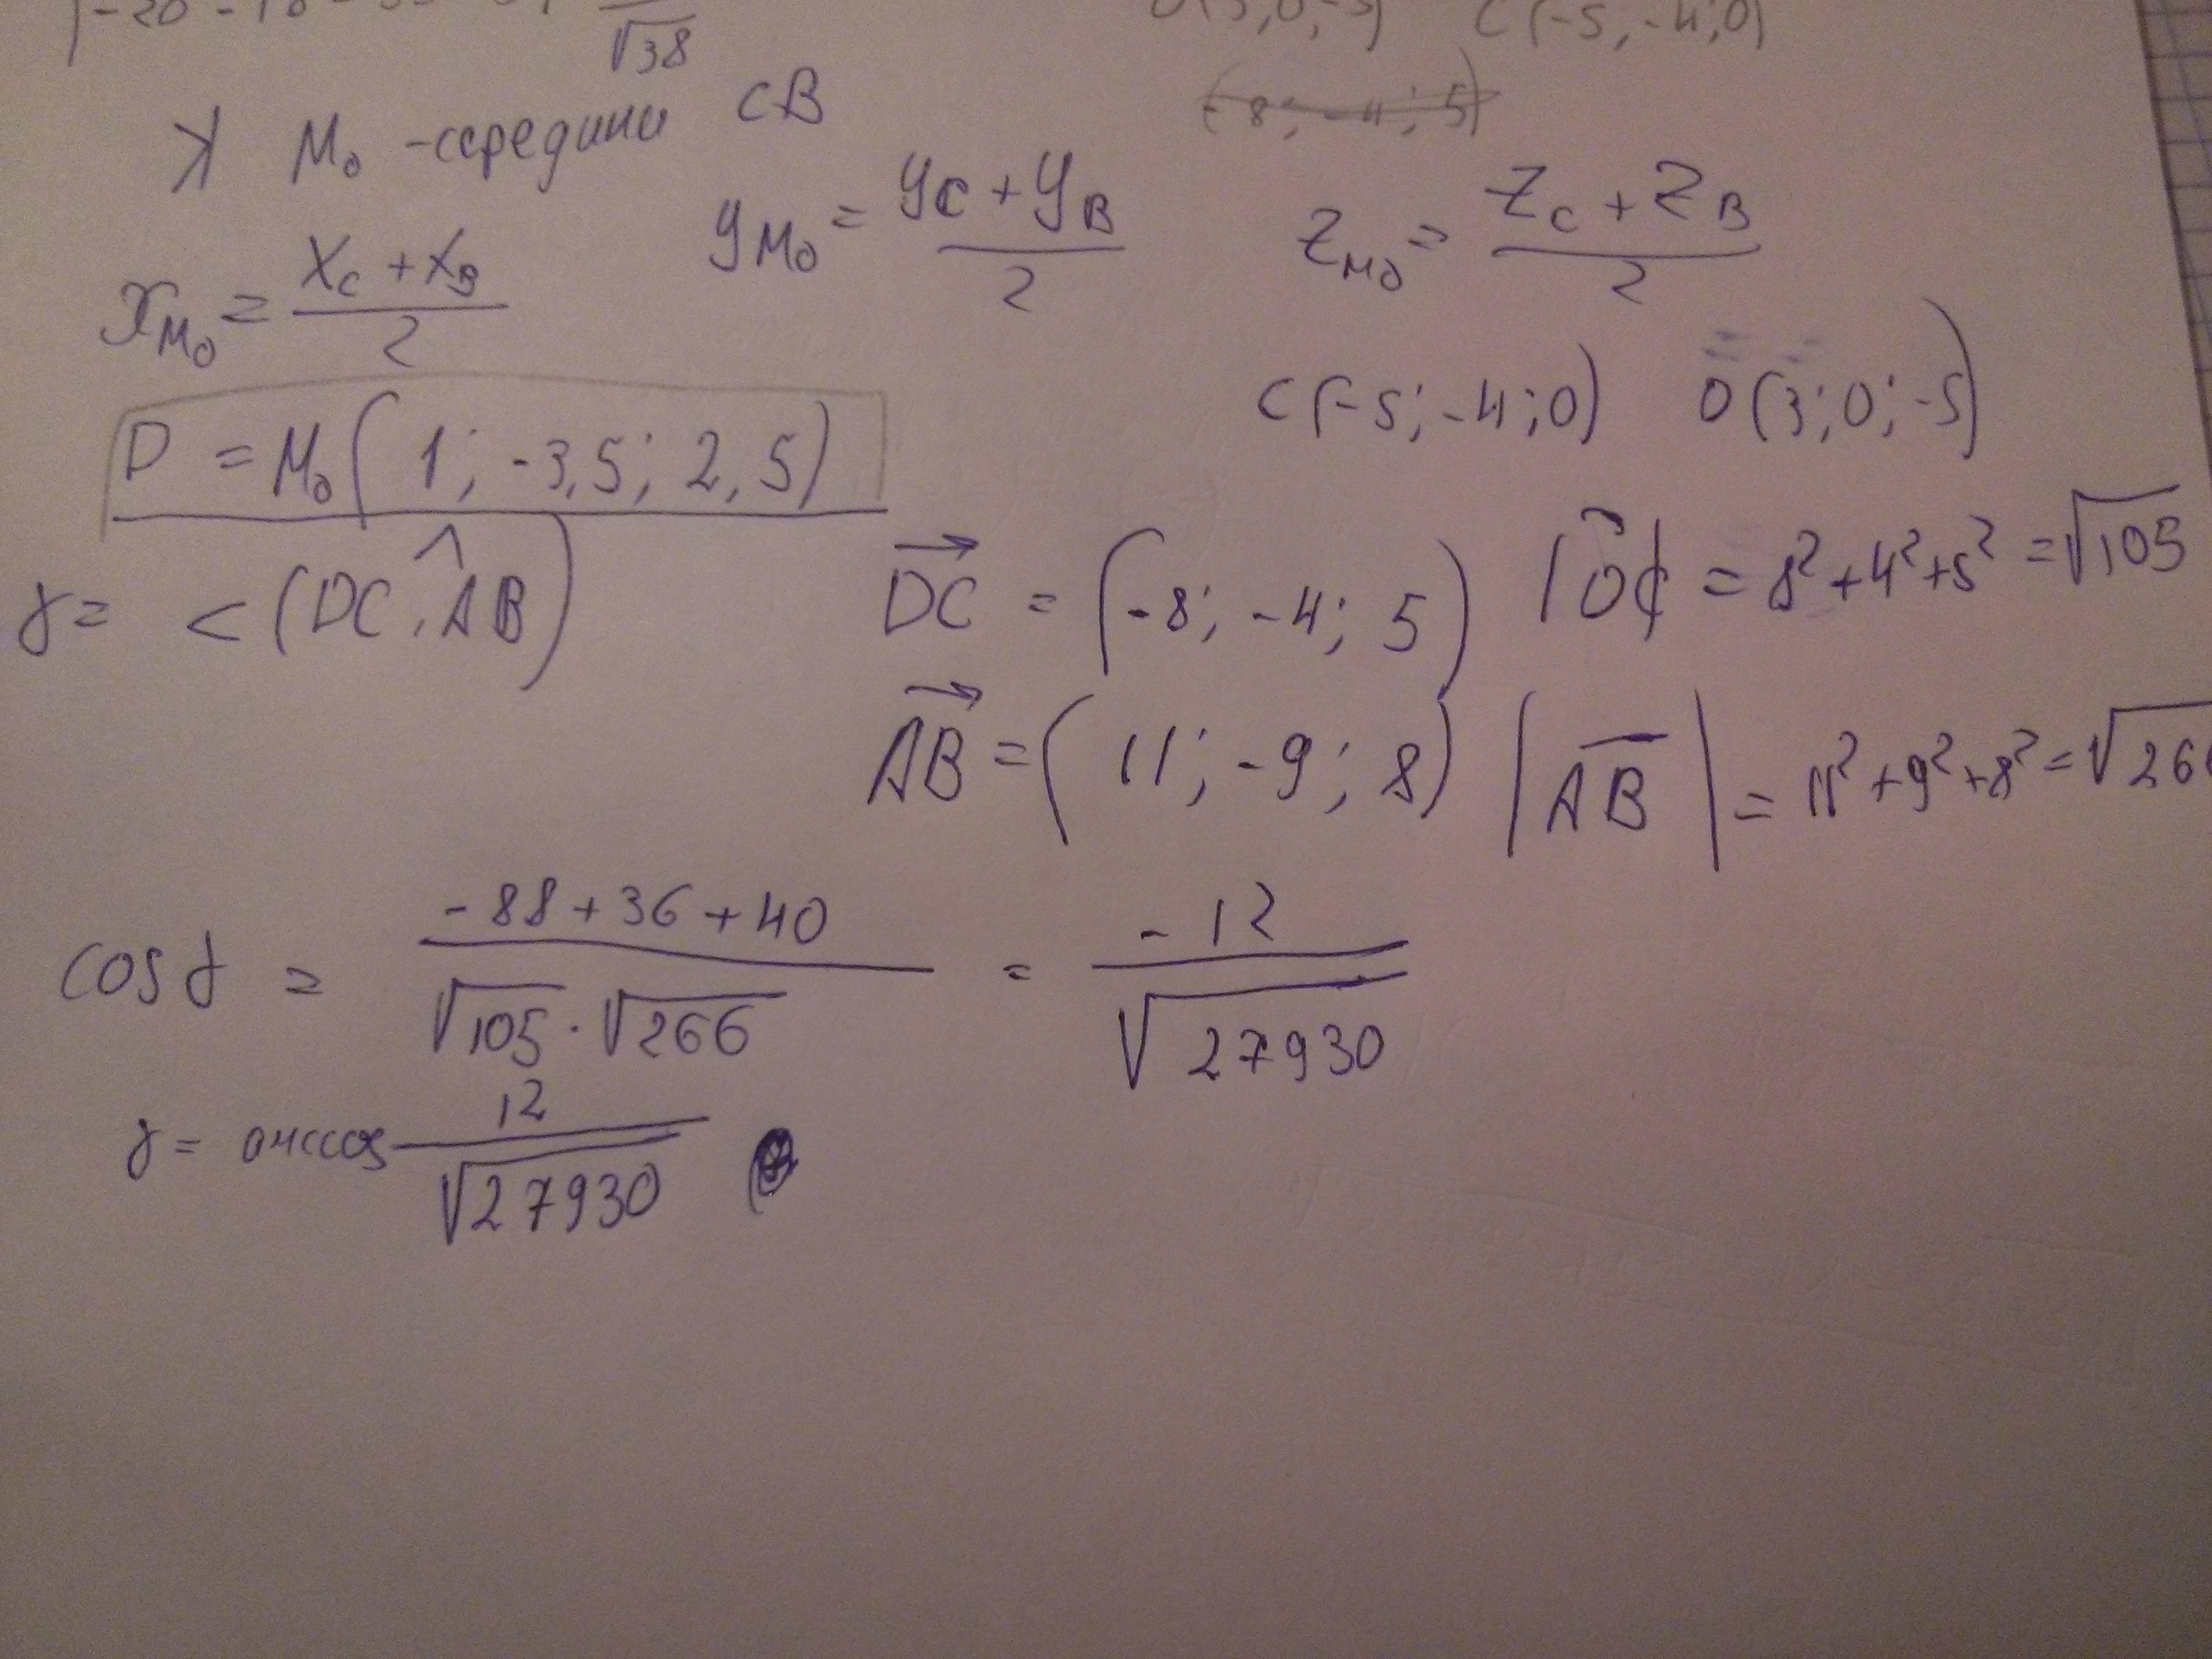 √38
C(-5; -4; 0)
(-8; -4; 5)
M₀ - середина CB
x_M₀ = (x_C + x_B)/2 y_M₀ = (y_C + y_B)/2 z_M₀ = (z_C + z_B)/2
C(-5; -4; 0) D(3; 0; -5)
D = M₀(1; -3,5; 2,5)
γ = <(DC, ^AB) DC = (-8; -4; 5) |DC| = 8² + 4² + 5² = √105
AB = (11; -9; 8) |AB| = 11² + 9² + 8² = √26
cos γ = (-88 + 36 + 40)/(√105 · √266) = -12/√27930
γ = arccos 12/√27930